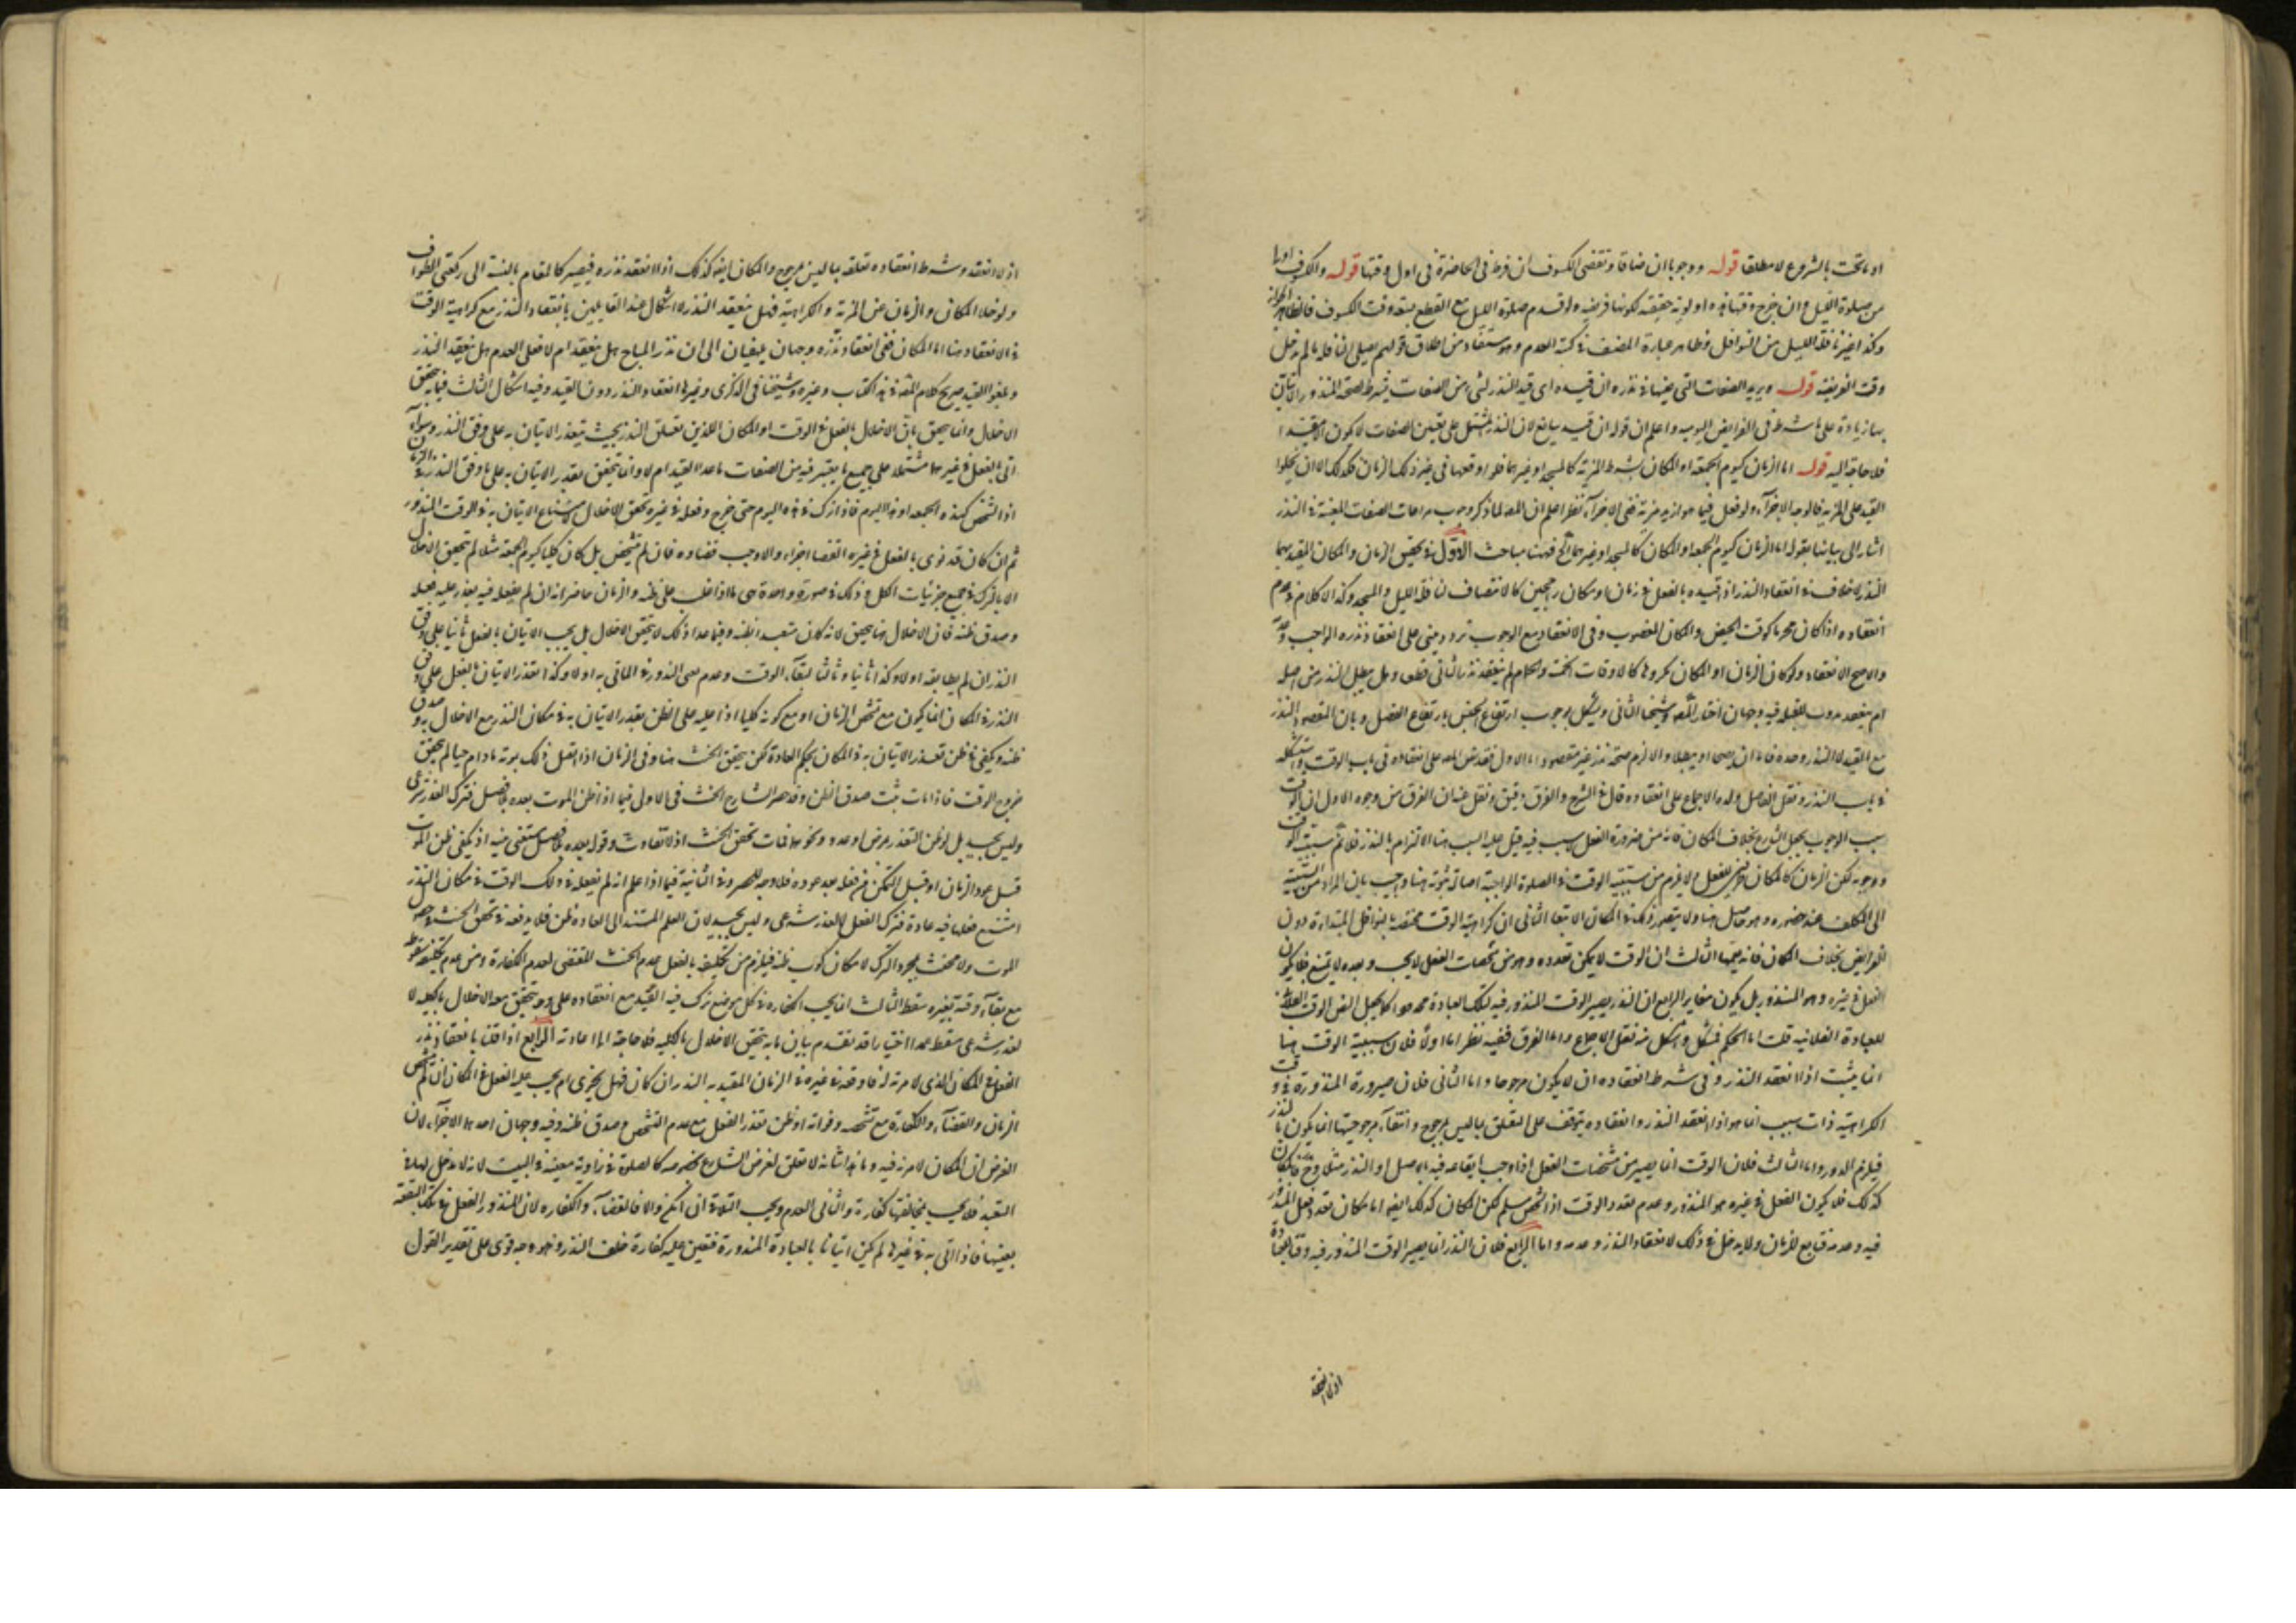 او ما تحت بالشروع لا مطلقا قوله ووجوبا ان ضاقا وتقضى الكسوف ان فرط فى الحاضرة فى اول وقتها قوله والكسوف اولى
من صلوة الليل وان خرج وقتها اولوية حقيقة لكونها فريضة ولو قدم صلوة الليل مع القطع بسعة وقت الكسوف فالظاهر الجواز
وكذا غير نافلة الليل من النوافل وظاهر عبارة المصنف فى كتبه العدم وهو مستفاد من اطلاق قولهم يصلى النافلة ما لم يدخل
وقت الفريضة قوله ويريد الصفات التى يعينها فى نذره ان قيده اى قيد النذر بشىء من الصفات يشترط لصحة المنذور الاتيان
بها زيادة على ما شرط فى الفرايض اليومية واعلم ان قوله ان قيده ضايع لان النذر المشتمل على تعيين الصفات لا يكون الا مقيدا
فلا حاجة اليه قوله اما الزمان كيوم الجمعة او المكان بشرط المزية كالمسجد او غيرهما فلو اوقعها فى غير ذلك الزمان فكذلك الا ان يخلوا
القيد على المزية فالوجه الاجزاء ولو فعل فيما هو ازيد مزية ففى الاجزاء نظر اعلم ان المص لما ذكر وجوب مراعات الصفات المعينة فى النذر
اشار الى بيانها بقوله اما الزمان كيوم الجمعة او المكان كالمسجد او غيرهما الخ فهنا مباحث الاول فى تحقيق الزمان والمكان المقيد بهما
النذر لا خلاف فى انعقاد النذر اذا قيده بالفعل فى زمان او مكان راجحين كالانتصاف لنافلة الليل والمسجد وكذا لا كلام فى عدم
انعقاده اذا كان محرما كوقت الحيض والمكان المغصوب وفى الانعقاد مع الوجوب تردد مبنى على انعقاد نذره الواجب وعدمه
والاصح الانعقاد ولو كان الزمان او المكان مكروها كالاوقات الخمسة والحمام لم ينعقد نذر الثانى قطعا وهل يبطل النذر من اصله
ام ينعقد بدون القيد فيه وجهان اختار المص وشيخنا الثانى ويشكل بوجوب ارتفاع الجنس بارتفاع الفصل وبان المقصود النذر
مع القيد لا النذر وحده فاما ان يصحا او يبطلا والا لزم صحة نذر غير مقصود واما الاول فقد نص المص على انعقاده فى باب الوقت واستشكله
فى باب النذر ونقل الفاضل ولده الاجماع على انعقاده قال فى الشرح والفرق دقيق ونقل عنه ان الفرق من وجوه الاول ان الوقت
سبب الوجوب بجعل الشارع بخلاف المكان فانه من ضرورة الفعل لا سبب فيه قيل عليه السبب هنا الالتزام بالنذر فلا تم سببية الوقت
ووجوبه لكن الزمان كالمكان ظرف للفعل ولا يلزم من سببية الوقت فى الصلوة الواجبة اصالة ثبوته هنا واجيب بان المراد من السببية
الى المكلف عند حضوره وهو حاصل هنا ولا يتصور ذلك فى المكان الا تبعا الثانى ان كراهية الوقت مختصة بالنوافل المبتدءة دون
الفرايض بخلاف المكان فانه يعمها الثالث ان الوقت لا يمكن تعدده وهو من مشخصات الفعل لا يجب وبعده لا يمتنع فلا يكون
الفعل فى غيره وهو المنذور بل يكون مغاير الرابع ان النذر يصير الوقت المنذور فيه لتلك العبادة محدودا كما يجعل النص الوقت الفلانى
للعبادة الفلانية قلت اما الحكم فمشكل واشكل منه نقل الاجماع واما الفرق ففيه نظر اما اولا فلان سببية الوقت هنا
انما يثبت اذا انعقد النذر وفى شرط انعقاده ان لا يكون مرجوحا واما الثانى فلان صيرورة المنذورة فى وقت
الكراهية ذات سبب انما هو اذا انعقد النذر وانعقاده يتوقف على التعلق بما ليس بمرجوح وانتفاء مرجوحيتها انما يكون بالنذر
فيلزم الدور واما الثالث فلان الوقت انما يصير من مشخصات الفعل اذا وجب ايقاعه فيه بالاصل او النذر مثلا وح فالمكان
كذلك فلا يكون الفعل فى غيره هو المنذور وعدم تعدد الوقت اذا تشخص مسلم لكن المكان كذلك ايضا اما مكان تعدد فعل المنذور
فيه وعدمه فتابع للزمان ولا يدخل فى ذلك لانعقاد النذر وعدمه واما الرابع فلان النذر انما يصير الوقت المنذور فيه وقتا للعبادة
اذا انعقد
اذا انعقد وشرط انعقاده تعلقه بما ليس بمرجوح والمكان ايضا كذلك اذا انعقد نذره فيصير كالمقام بالنسبة الى ركعتى الطواف
ولو خلا المكان والزمان عن المزية والكراهية فهل ينعقد النذر لا اشكال عند القايلين بانعقاد النذر مع كراهية الوقت
فى الانعقاد هنا اما المكان ففى انعقاد نذره وجهان يلتفتان الى ان نذر المباح هل ينعقد ام لا فعلى العدم هل ينعقد النذر
ويلغو القيد صريح كلام المص فى هذا الكتاب وغيره وشيخنا فى الذكرى وغيرها انعقاد النذر دون القيد وفيه اشكال الثالث فيما به يتحقق
الاخلال وانما يتحقق بان الاخلال بالفعل فى الوقت او المكان اللذين تعلق النذر بحيث يتعذر الاتيان به على وفق النذر وسواء
اتى بالفعل فى غيرها مشتملة على جميع ما يعتبر فيه من الصفات ما عدا القيد ام لا وانما يتحقق تعذر الاتيان به على ما وفق النذر فى الزمان
اذا تشخص كهذه الجمعة او هذا اليوم فاذا ترك فى هذه اليوم حتى خرج وفعله فى غيره تحقق الاخلال لامتناع الاتيان به فى الوقت المنذور
ثم ان كان قد نوى بالفعل فى غيره القضا اجزاء والا وجب قضاوه فان لم يتشخص بل كان كليا كيوم الجمعة مثلا لم يتحقق الاخلال
الا بالترك فى جميع جزئيات الكل وذلك فى صورة واحدة هى ما اذا غلب على ظنه والزمان حاضر انه ان لم يفعله فيه تعذر عليه فعله
وصدق ظنه فان الاخلال هنا يتحقق لانه كان متعبدا بظنه وفيما عدا ذلك لا يتحقق الاخلال بل يجب الاتيان بالفعل ثانيا على وفق
النذر ان لم يطابقه اولا وكذا ثانيا وثالثا لبقاء الوقت وعدم صحة المنذور فى الماتى به اولا وكذا تعذر الاتيان بالفعل على وفق
النذر فى المكان انما يكون مع تشخص الزمان او مع كونه كليا اذا غلب على الظن تعذر الاتيان به فى مكان النذر مع الاخلال به وصدق
ظنه ويكفى فى ظن تعذر الاتيان به فى المكان بحكم العادة لكن يتحقق الحنث هنا وفى الزمان اذا اتصل ذلك بموته مادام حيا لم يتحقق
خروج الوقت فاذا مات ثبت صدق الظن وقد حصر الشارح الحنث فى الاولى فيما اذا ظن الموت بعده بلا فصل فترك العذر شرعى
وليس بجيد بل لو ظن التعذر لمرض او عدو ونحوهما فمات تحقق الحنث اذ لا تفاوت وقوله بعده بلا فصل مستغنى عنه اذ يكفى ظن الموت
قبل عود الزمان او قبل التمكن من فعله بعد عوده فلا وجه للحصر وفى الثانية فيما اذا علم انه لم يفعله فى ذلك الوقت فى مكان النذر
امتنع فعلها فيه عادة فترك الفعل لا لعذر شرعى وليس بجيد لان العلم المستند الى العادة ظن فلا يدفعه فى تحقق الحنث وحصوله
الموت ولا يحنث بمجرد الترك لامكان كذب ظنه فيلزم من تكليفه بالفعل عدم الحنث المقتضى لعدم الكفارة ومن عدم تكليفه سقوطه
مع بقاء وقته بتغيره سقط الثالث انما يجب الكفارة فى كل موضع ترك فيه القيد مع انعقاده على وجه يتحقق معه الاخلال بالكلية لا
لعذر شرعى مسقط عمدا اختيارا قد تقدم بيان ما به يتحقق الاخلال بالكلية فلا حاجة الى اعادته الرابع اذا قلنا بانعقاد نذر
الفعل فى المكان الذى لا مزية له فاوقعه فى غيره فى الزمان المقيد به النذر ان كان فهل يجزى ام يجب عليه الفعل فى المكان ان لم يتشخص
الزمان والقضاء والكفارة مع تشخصه وفواته او ظن تعذر الفعل مع عدم التشخص وصدق ظنه وفيه وجهان احدهما الاجزاء لان
الفرض ان المكان لا مزية فيه وما هذا شانه لا تعلق لغرض الشارع بخصوصه كالصلوة فى زاوية معينة فى البيت لانه لا مدخل لها فى
التعبد فلا يجب بمخالفتها كفارة والثانى العدم ويجب الثلاثة ان امكن والا فالقضاء والكفارة لان المنذور الفعل فى تلك البقعة
بعينها فاذا اتى به فى غيرها لم يكن اتيانا بالعبادة المنذورة فتعين عليه كفارة خلف النذر وهو وجه قوى على تقدير القول